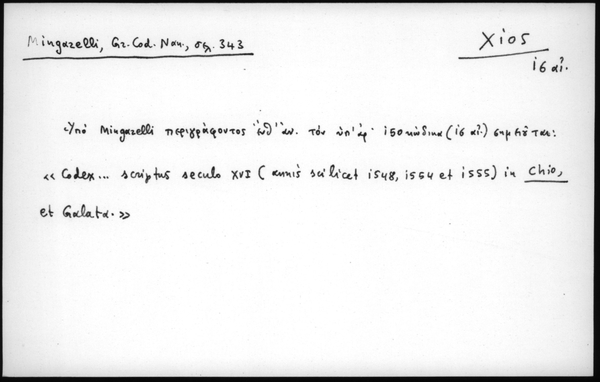 Mingarelli, Gr. Cod. Nan., σελ. 343
Χίος
16 αἰ.
Ὑπὸ Mingarelli περιγράφοντος ἐνθ' ἀν. τὸν ὑπ' ἀρ. 150 κώδικα (16 αἰ.) σημειοῦται:
«Codex... scriptus seculo XVI (annis scilicet 1548, 1554 et 1555) in Chio,
et Galata.»